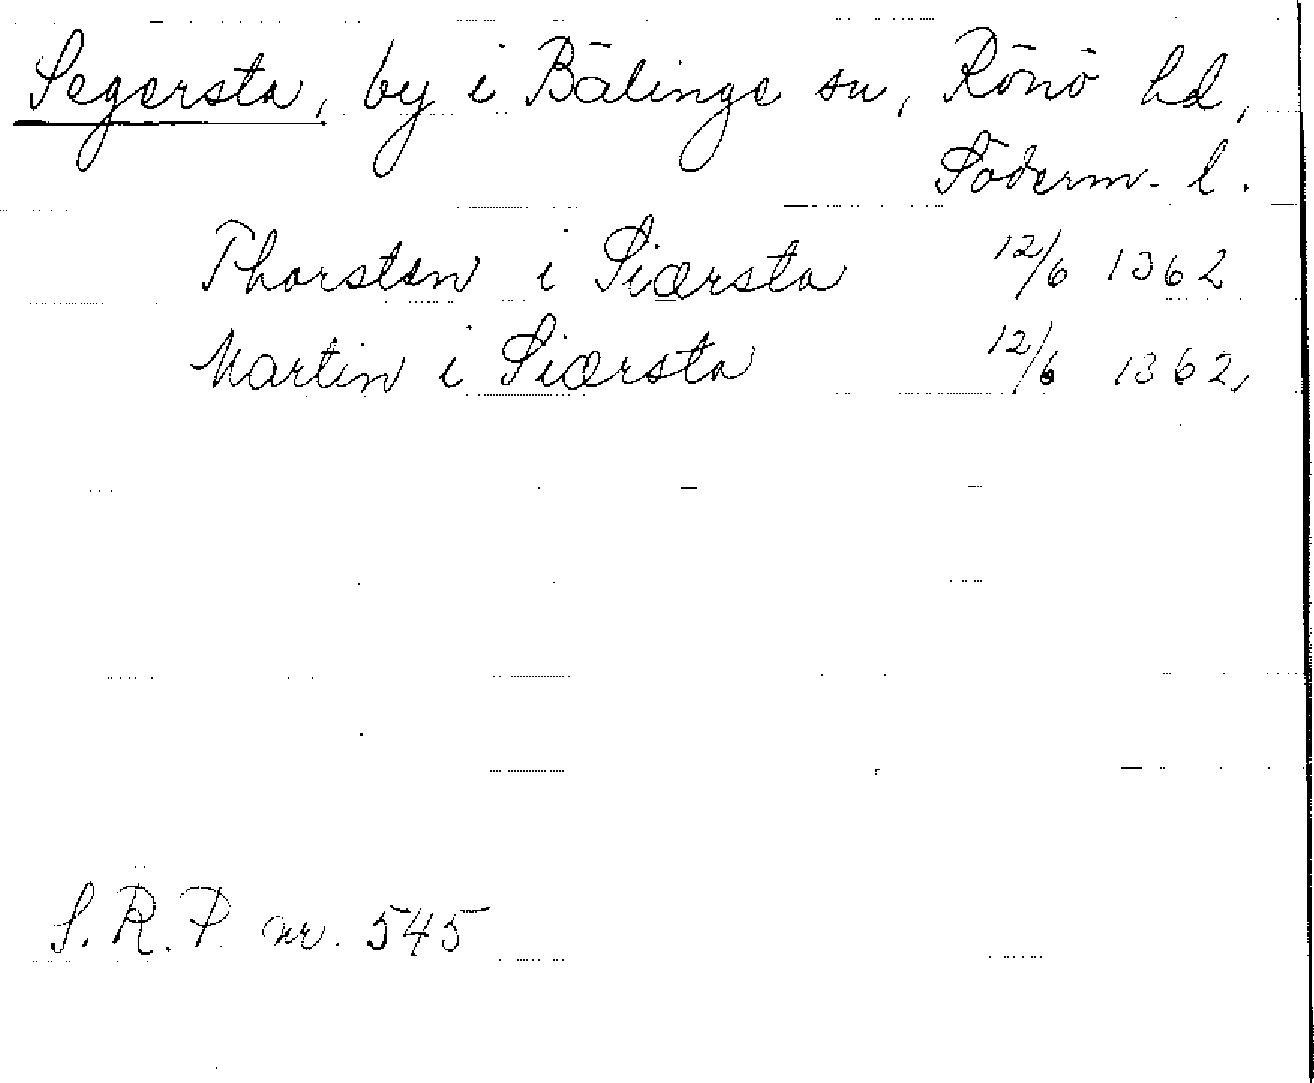 Segersta, by i Bälinge sn, Rönö hd,
Söderm. l.
Thorsten i Siærsta 12/6 1362
Martin i Siærsta 12/6 1362,
S.R.P. nr. 545